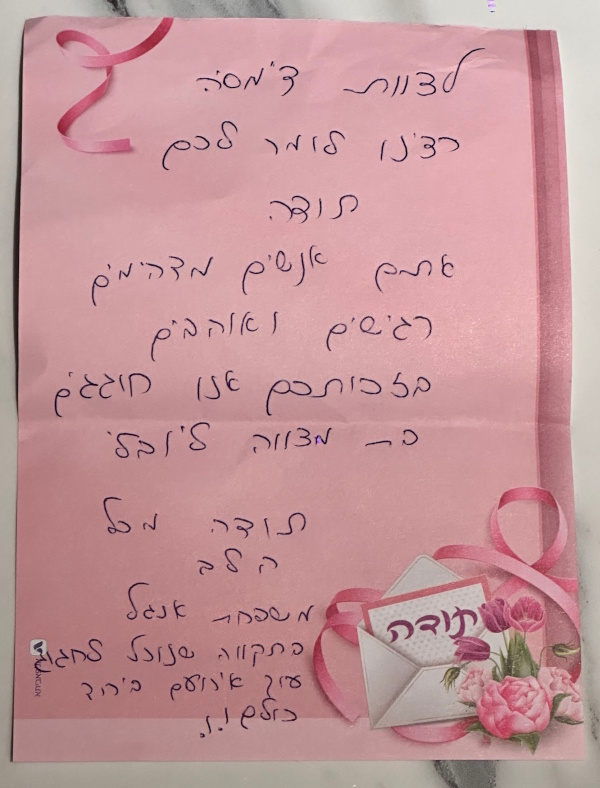 לצוות ד'מסה
רצינו לומר לכם
תודה
אתם אנשים מדהימים
רגישים ואוהבים
בזכותכם אנו חוגגים
בת מצווה ליובלי
תודה מכל
הלב
משפחת אנגל
בתקווה שנוכל לחגוג
עוד אירועים ביחד
כולם!.!.
תודה